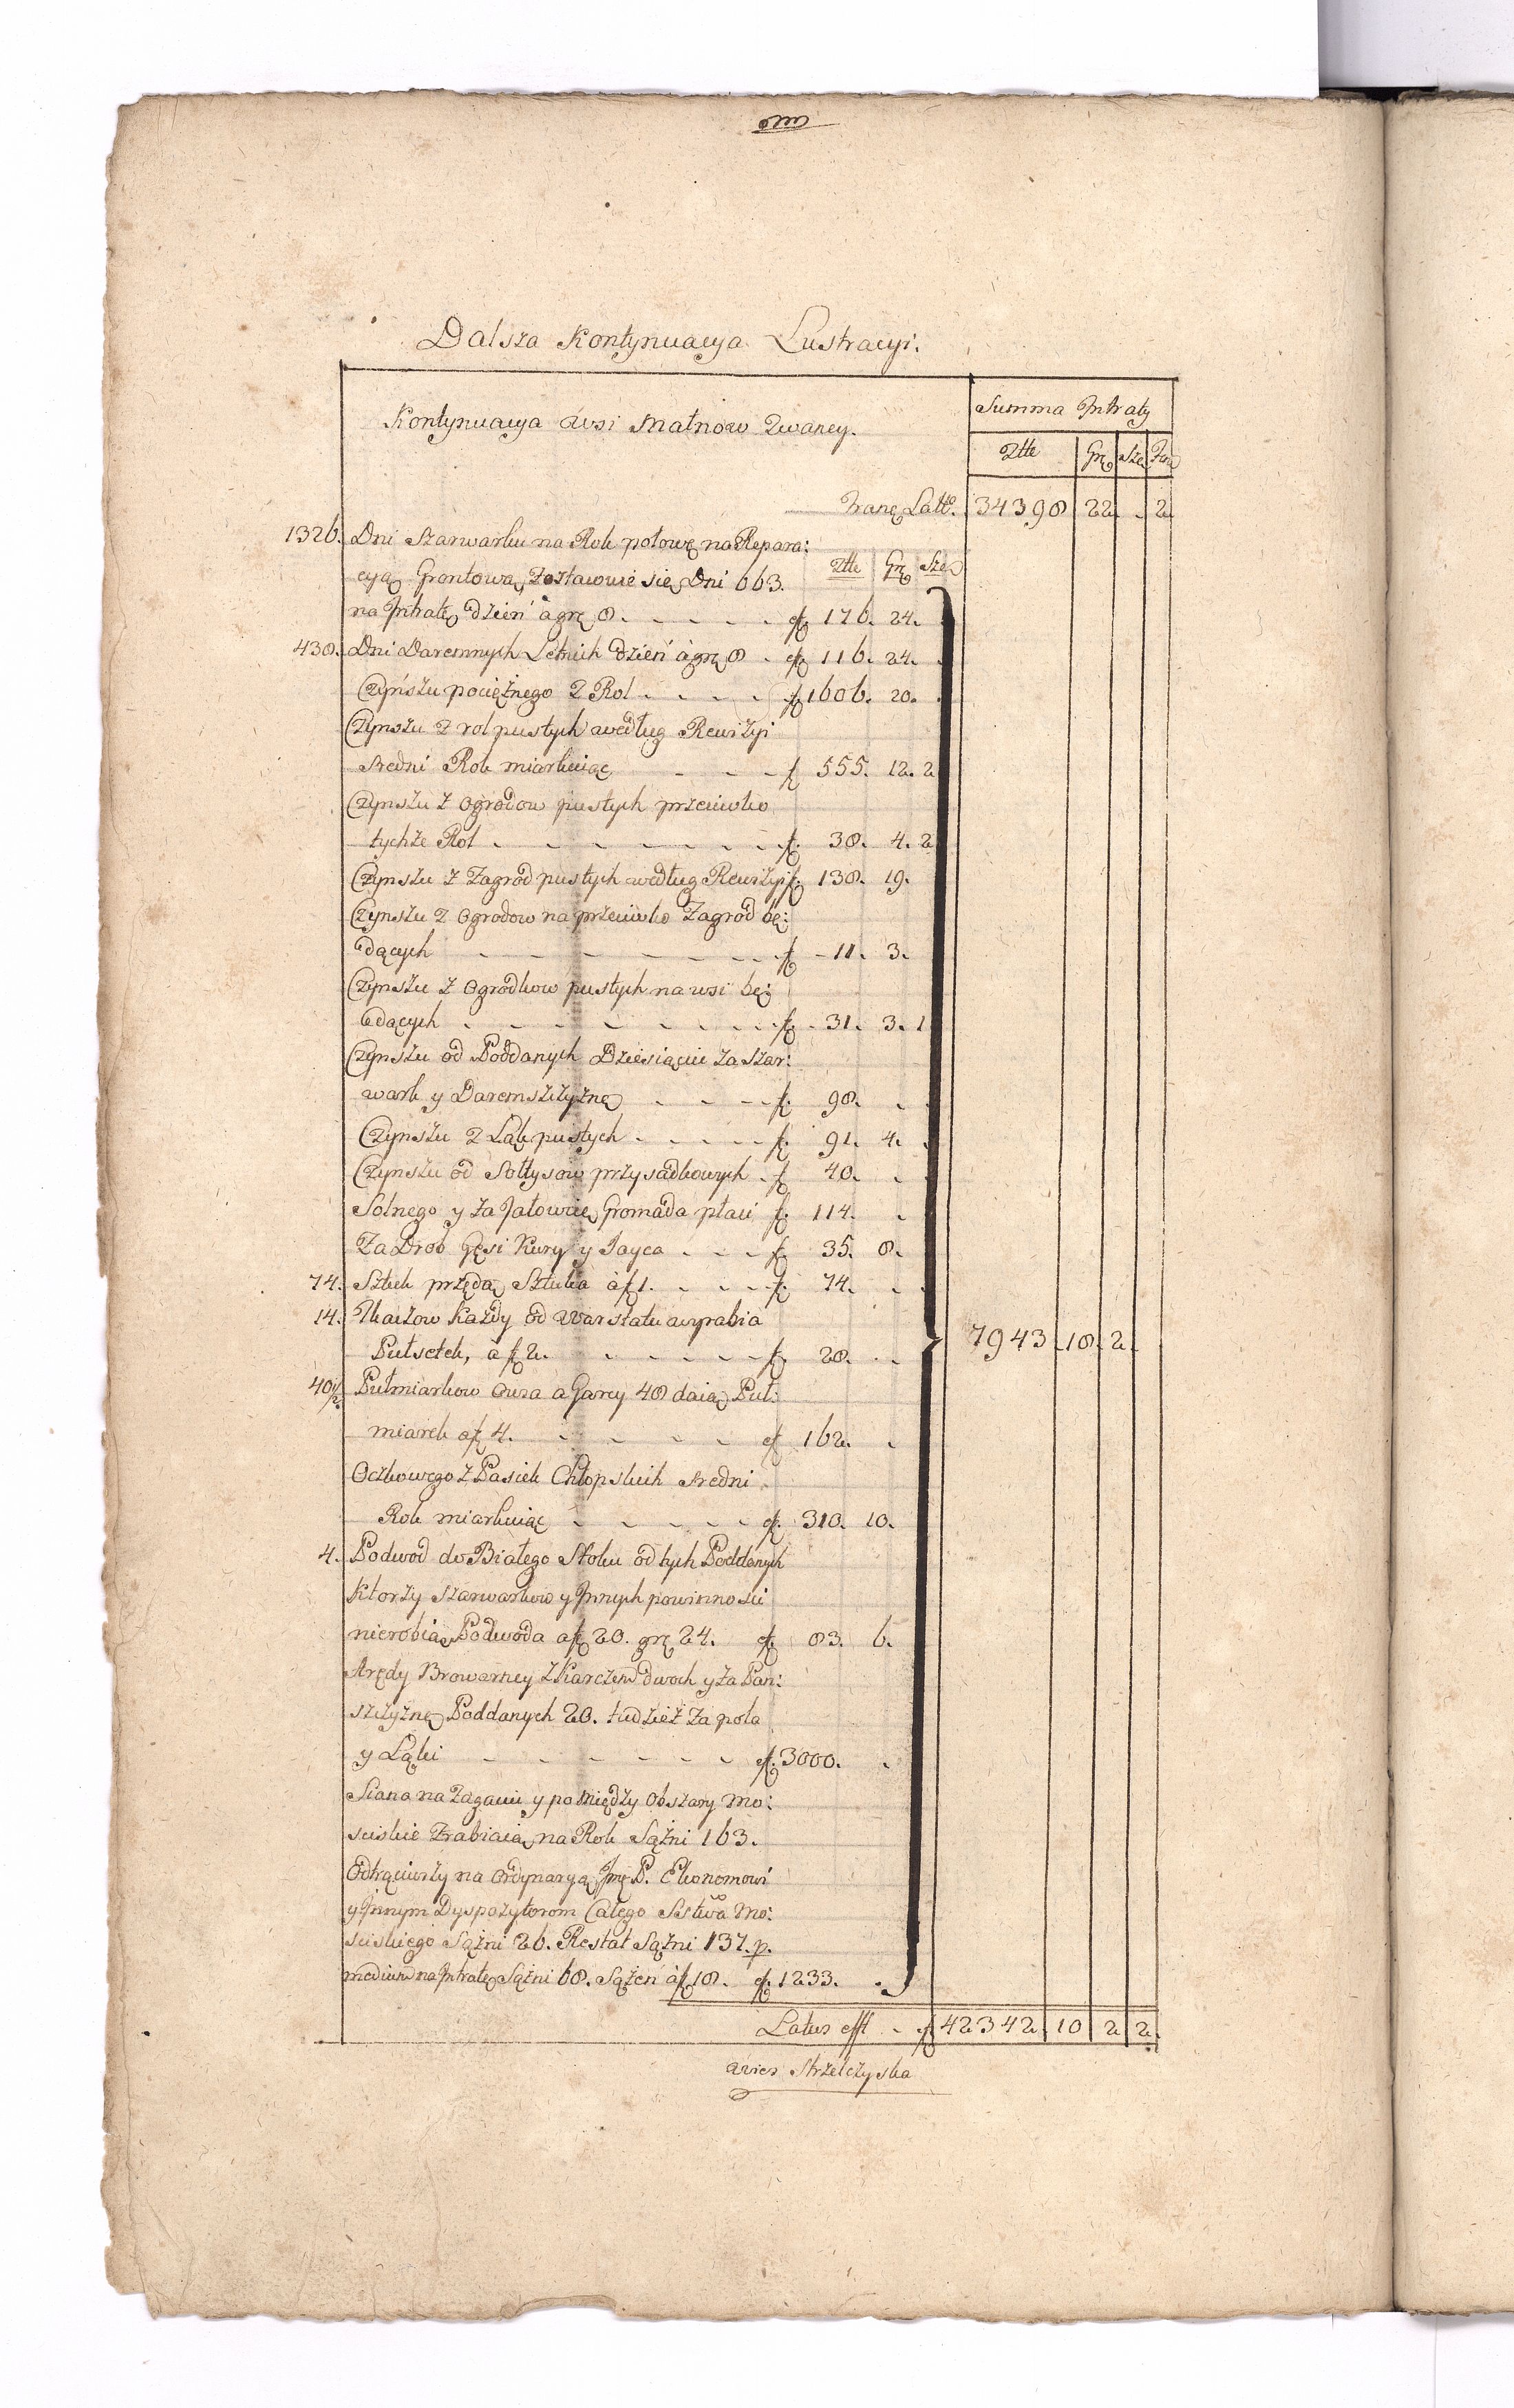 Dalsza Kontynuacya Lustracyi.
Kontynuacya Wsi Małnow Zwaney.
Summa Intraty
Złłe Gr Sze
Tranę Latto. 34398 22 . 2
1326. Dni Szarwarku na Rok połowę na Repara:
Złłe Gr Sze
cyą Grontową, Zostawuie się Dni 663.
na Intratę dzień à gr 8. f 176. 24.
438. Dni Daremnych Letnich dzień à gr 8 f 116. 24.
Czynszu pociężnego z Rol f 1606. 20.
Czynszu z rol pustych według Rewizyi
sredni Rok miarkuiąc f 555. 12. 2
Czynszu z Ogrodow pustych przeciwko
tychże Rol f. 38. 4. 2
Czynszu z Zagrod pustych według Rewizyi f. 138. 19.
Czynszu z Ogrodow na przeciwko Zagrod bę:
dących f 11. 3.
Czynszu z Ogrodkow pustych na wsi bę:
dących f. 31. 3. 1
Czynszu od Poddanych Dziesiąciu za Szar:
wark y Daremszczyznę f. 98.
Czynszu z Łąk pustych f. 91. 4.
Czynszu od Sołtysow przysadkowych f 40.
Solnego y za Jałowicę Gromada płaci f. 114.
Za Drob Gęsi Kury y Jayca f. 35. 8.
74. Sztuk przędą Sztuka à f 1. f. 74.
14. Tkaczow Każdy od Warstatu wyrabia
Pułsetek, à f 2. f. 28.
7943 18 2
40½ Pułmiarkow Owsa a Garcy 48 daią Puł:
miarek a f 4. f 162.
Oczkowego z Pasiek Chłopskich sredni
Rok miarkuiąc f. 310. 10.
4. Podwod do Białego Stoku od tych Poddanych
Ktorzy szarwarkow y Innych powinności
nierobią Podwoda a f 20. gr 24. f. 83. 6.
Arędy Browarney z Karczem dwoch y za Pan:
szczyznę Poddanych 20. tudzież za pola
y Łąki f. 3000.
Siana na Zagaciu y pomiędzy Obszary Mo:
sciskie Zrabiaią na Rok Sążni 163.
Odtrąciwszy na Ordynaryą Jmę P. Ekonomowi
y Innym Dyspozytorom Całego Ststwa Mo:
sciskiego Sążni 26. Restat Sążni 137. p.
medium na Intratę Sążni 68. Sążeń à f 18. f. 1233.
Latus effl f 42342. 10 2 2.
Wies Strzelczyska